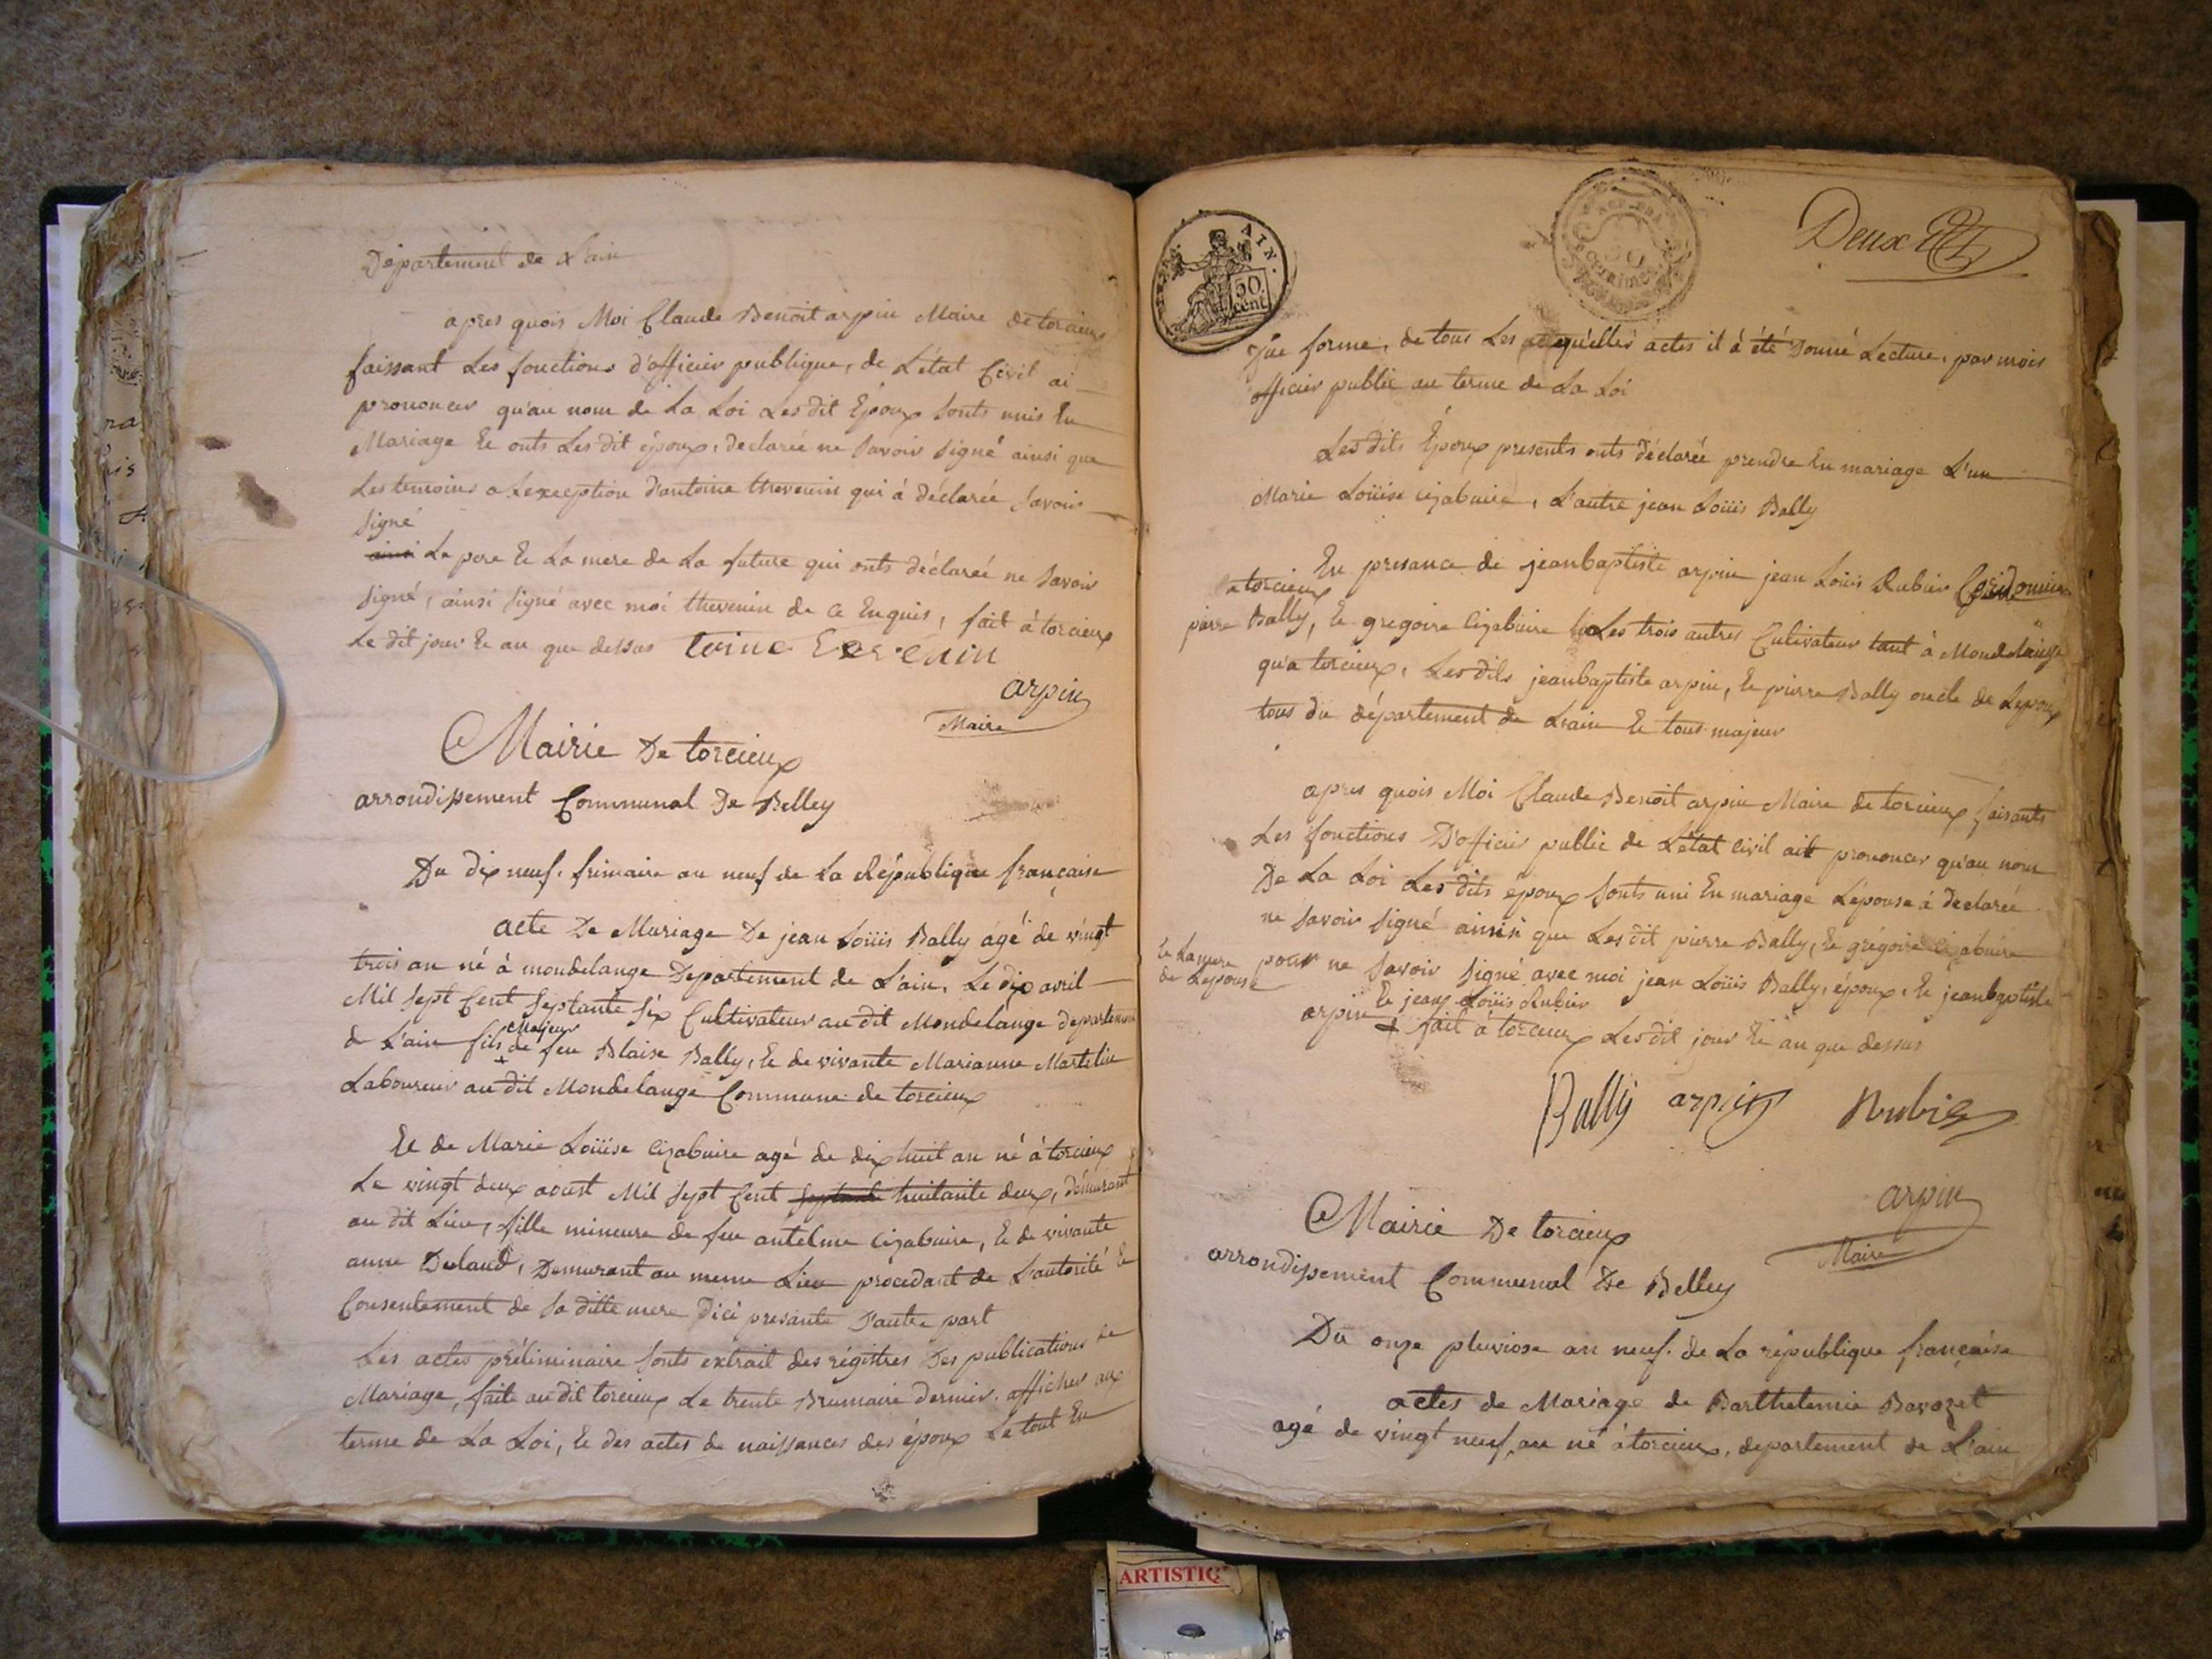 Département de L'ain
apres quois Moi Claude Benoit arpin Maire de torcieux
faissant Les fonctions d'officier publique, de L'état Civil ai
prononcer qu'au nom de La Loi Les dit Époux sonts unis En
Mariage Et onts Les dit époux, declarée ne savoir signé ainsi que
Les temoins a Lexception d'antoine thevenin qui à déclarée savoir
signé
ainsi Le pere Et La mere de La future qui onts déclareé ne savoir
signé, ainsi signé avec moi thevenin de ce Enquis, fait à torcieux
Le dit jour Et an que dessus toine
arpin
Maire
Mairie De torcieux
arrondissement Communal De Belley
Du dix neuf. frimaire an neuf de La République française
acte De Mariage De jean Loüis Bally agé de vingt
trois an né à mondelange Departement de L'ain, Le dix avril
Mil sept Cent septante six Cultivateur au dit Mondelange departement
Majeur
d L'ain fils de feu Blaise Bally, Et de vivante Marianne Martelin
Laboureur au dit Mondelange Commune de torcieux
Et de Marie Loüise Cizabuire agé de dix huit an né à torcieux
Le vingt deux aoust Mil sept Cent septante huitante deux, démurant
au dit Lieu, fille mineure de feu antelme Cizabuire, Et de vivante
anne Deland, Demurant au meme Lieu procedant de L'autorité Et
Consentement de sa ditte mere Dici presante D'autre part
Les actes préliminaire sonts extrait des régistres Des publications de
Mariage, faite au dit torcieux Le trente Brumaire dernier. afficher aux
terme de La Loi, Et des actes de naissances des époux Le tout En
AIN.
50 cent
50 centimes
Deux
forme, de tous Les qu'elles actes il à été Donné Lecture, par mois
officier public au terme de La Loi
Les dits Époux presents onts déclarée prendre En mariage L'un
Marie Loüise Cizabuire, L'autre jean Loüis Bally
En presance de jeanbaptiste arpin jean Loüis Rubier Cordonnier
a torcieux
pierre Bally, Et gregoire Cizabuire Les trois autres Cultivateur tant à Mondelange
qu'a torcieux, Les dits jeanbaptiste arpin, Et pierre Bally oncle de Lepoux
tous du département de Lain Et tous majeur
apres quois Moi Claude Benoit arpin Maire de torcieux faisants
Les fonctions D'officier public de L'état Civil ait prononcer qu'au nom
De La Loi Les dits époux sonts uni En mariage L'épouse à declarée
ne savoir signé ainsi que Les dit pierre Bally, Et grégoire Cizabuire
Et La mere
de Lepouse
pour ne savoir signé avec moi jean Loüis Bally, époux, Et jeanbaptiste
Et jean Loüis Rubier
arpin fait à torcieux Les dit jour Et an que dessus
Bally arpin Rubier
arpin
Maire
Mairie De torcieux
arrondissement Communal De Belley
Du onze pluviose an neuf. de La république française
actes de Mariage de Barthelemie Bavozet
agé de vingt neuf an né à torcieux, departement de L'ain
ARTISTIQ